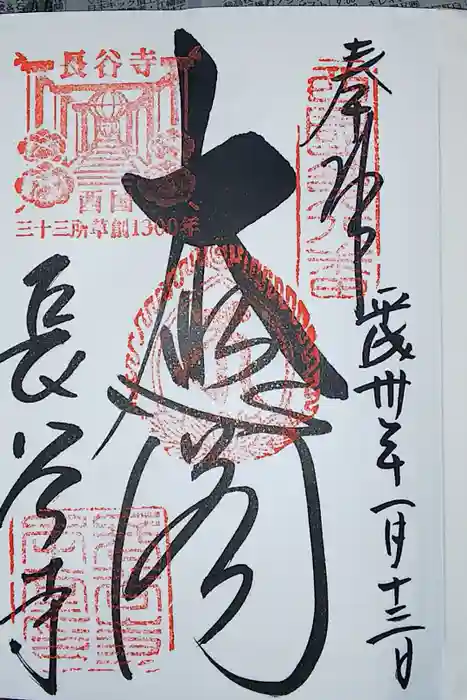 奉拝
平成卅年一月十三日
大悲閣
長谷寺
長谷寺
西国
三十三所草創1300年